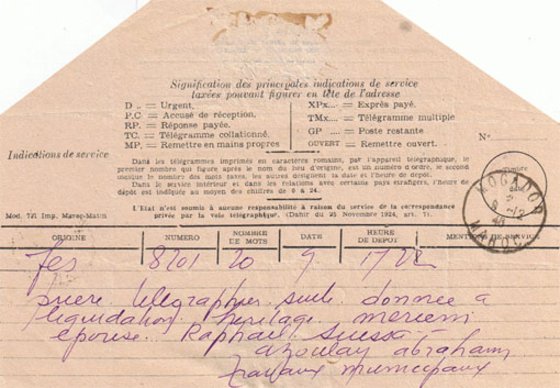 Signification des principales indications de service
taxées pouvant figurer en tête de l'adresse
D .. = Urgent.
P.C = Accusé de réception.
RP. = Réponse payée.
TC. = Télégramme collationné.
MP. = Remettre en mains propres
XPx.... = Exprès payé.
TMx.... = Télégramme multiple
GP .... = Poste restante
OUVERT = Remettre ouvert.
Nº
Indications de service
Dans les télégrammes imprimés en caractères romains, par l'appareil télégraphique, le
premier nombre qui figure après le nom du lieu d'origine, est un numéro d'ordre, le second
indique le nombre des mots taxés, les autres désignent la date et l'heure de dépôt.
Dans le service intérieur et dans les relations avec certains pays étrangers, l'heure de
dépôt est indiquée au moyen des chiffres de 0 à 24.
L'Etat n'est soumis à aucune responsabilité à raison du service de la correspondance
privée par la voie télégraphique. (Dahir du 25 Novembre 1924, art. 7).
Mod. 721 Imp. Maroc-Matin
MOGADOR
MAROC
ORIGINE NUMERO NOMBRE DE MOTS DATE HEURE DE DEPOT MENTIONS DE SERVICE
Fes 8201 20 9 1722
priere telegraphier suite donnee a
liquidation heritage meriem
epouse Raphael Suissa
azoulay abraham
travaux municipaux